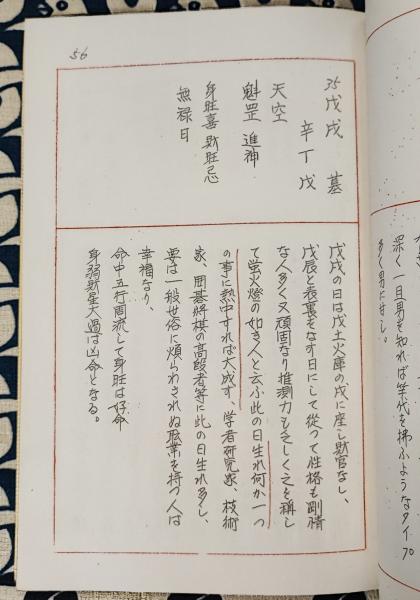 56
35 戊戌 墓
辛丁戊
天空
魁罡 進神
身旺喜財旺忌
無禄日
戊戌の日は戊土火庫の戌に座し財官なし、
戊辰と表裏をなす日にして従つて性格も剛情
な人多く又頑固なり推測力も乏しく之を称し
て蛍火燈の如き人と云ふ此の日生れ何か一つ
の事に熱中すれば大成す、学者研究家、技術
家、囲碁将棋の高段者等に此の日生れ多し、
要は一般世俗に煩らわされぬ職業を持つ人は
幸福なり、
命中五行周流して身旺は好命
身弱財星大過は凶命となる。
深く一旦男を知れば箒代を拂ふようなタイプ
多く男に甘し。